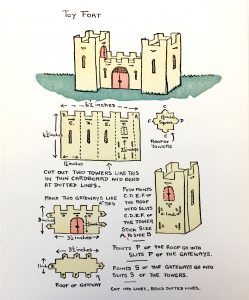 TOY FORT
6½ inches
6½ inches
1½ inches
A
B
C
F
D
E
ROOF OF
TOWERS
CUT OUT TWO TOWERS LIKE THIS
IN THIN CARDBOARD AND BEND
AT DOTTED LINES.
MAKE TWO GATEWAYS LIKE
THIS
PUSH POINTS
C.D.E.F OF
THE ROOF
INTO SLITS
C.D.E.F.
OF THE
TOWER
STICK SIDE
A TO SIDE B
5½ inches
3½ inches
ROOF OF GATEWAY
POINTS P OF THE ROOF GO INTO
SLITS P OF THE GATEWAYS.
POINTS S OF THE GATEWAYS GO INTO
SLITS S OF THE TOWERS.
CUT THIS LINES, BEND DOTTED LINES.